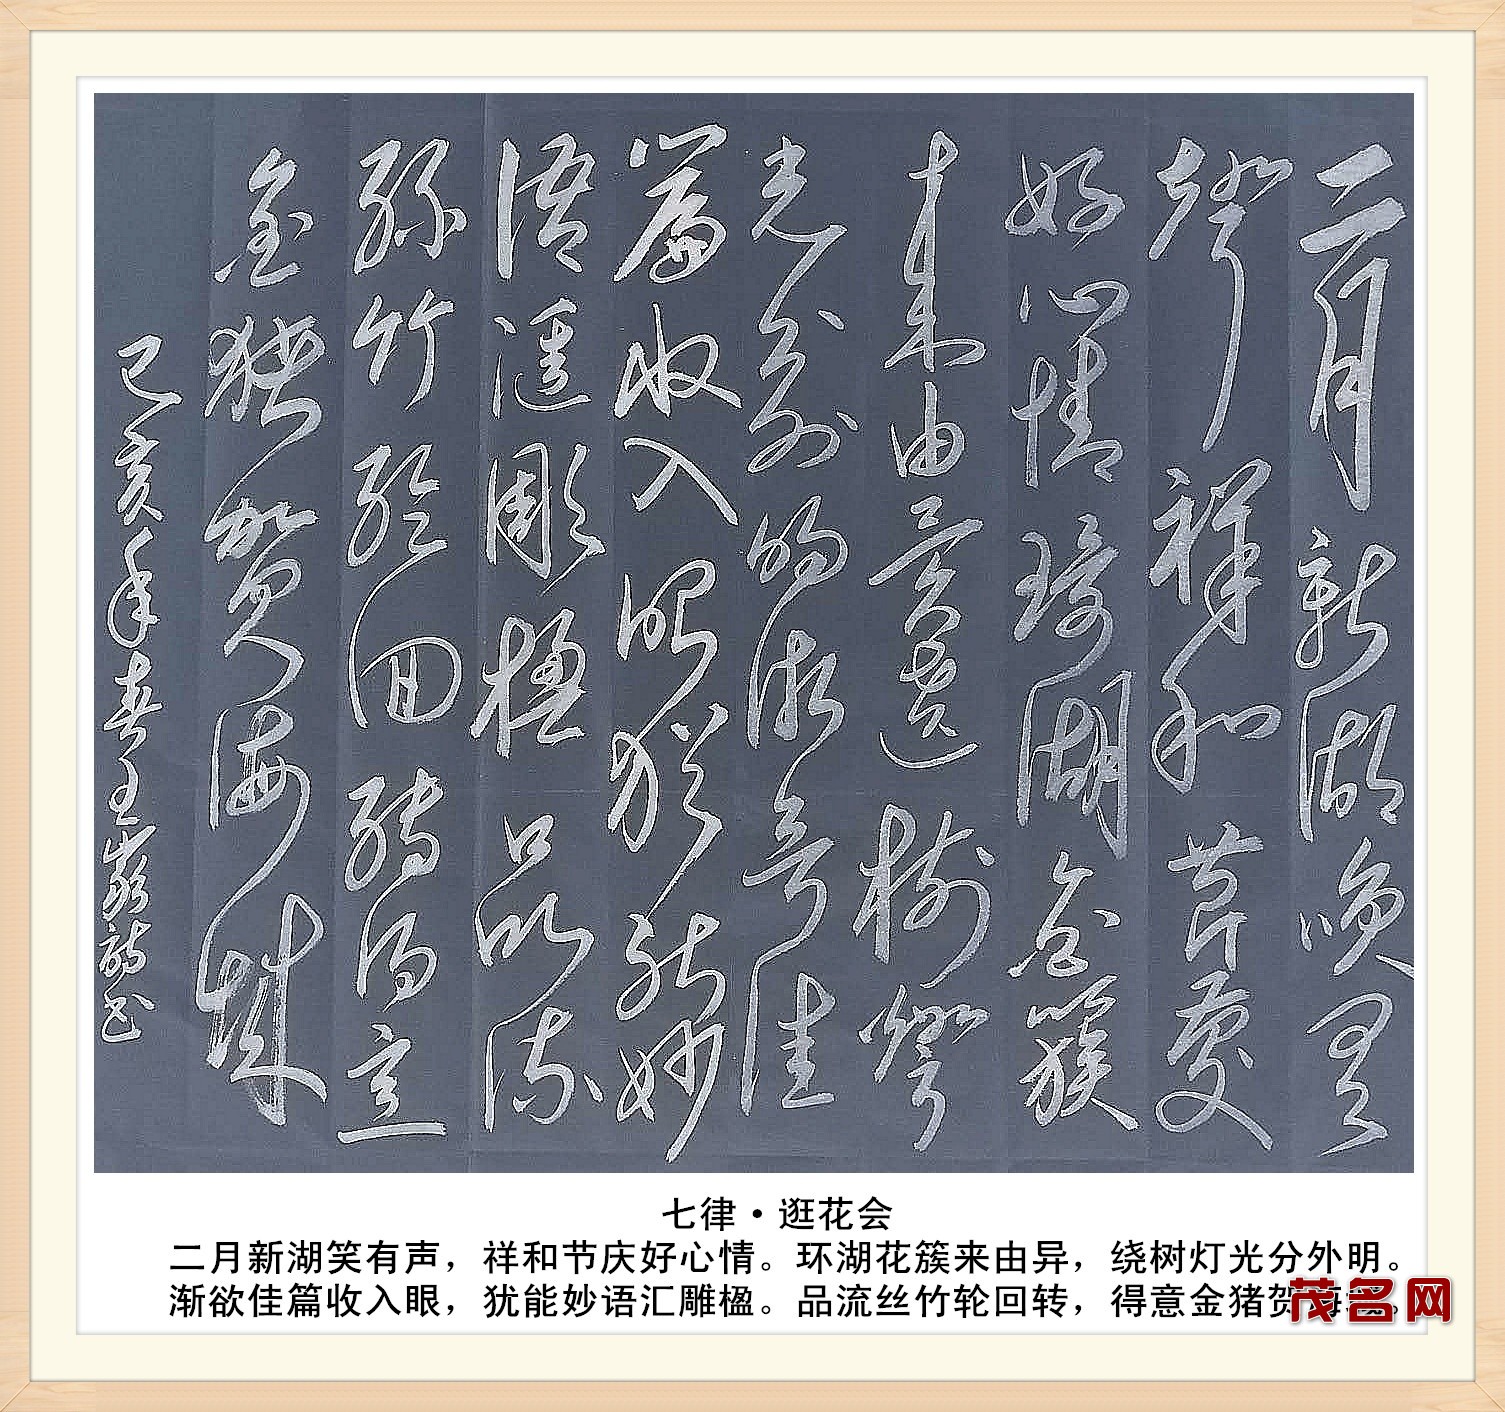 二月新湖咲有
聲祥和节慶
好心情環湖花簇
来由異遶樹燈
光分外明漸欲佳
篇收入眼猶能妙
語滙雕楹品流
絲竹輪回轉得意
金猪賀海城
己亥年春王
七律·逛花会
二月新湖笑有声，祥和节庆好心情。环湖花簇来由异，绕树灯光分外明。
渐欲佳篇收入眼，犹能妙语汇雕楹。品流丝竹轮回转，得意金猪贺海城。
茂名网